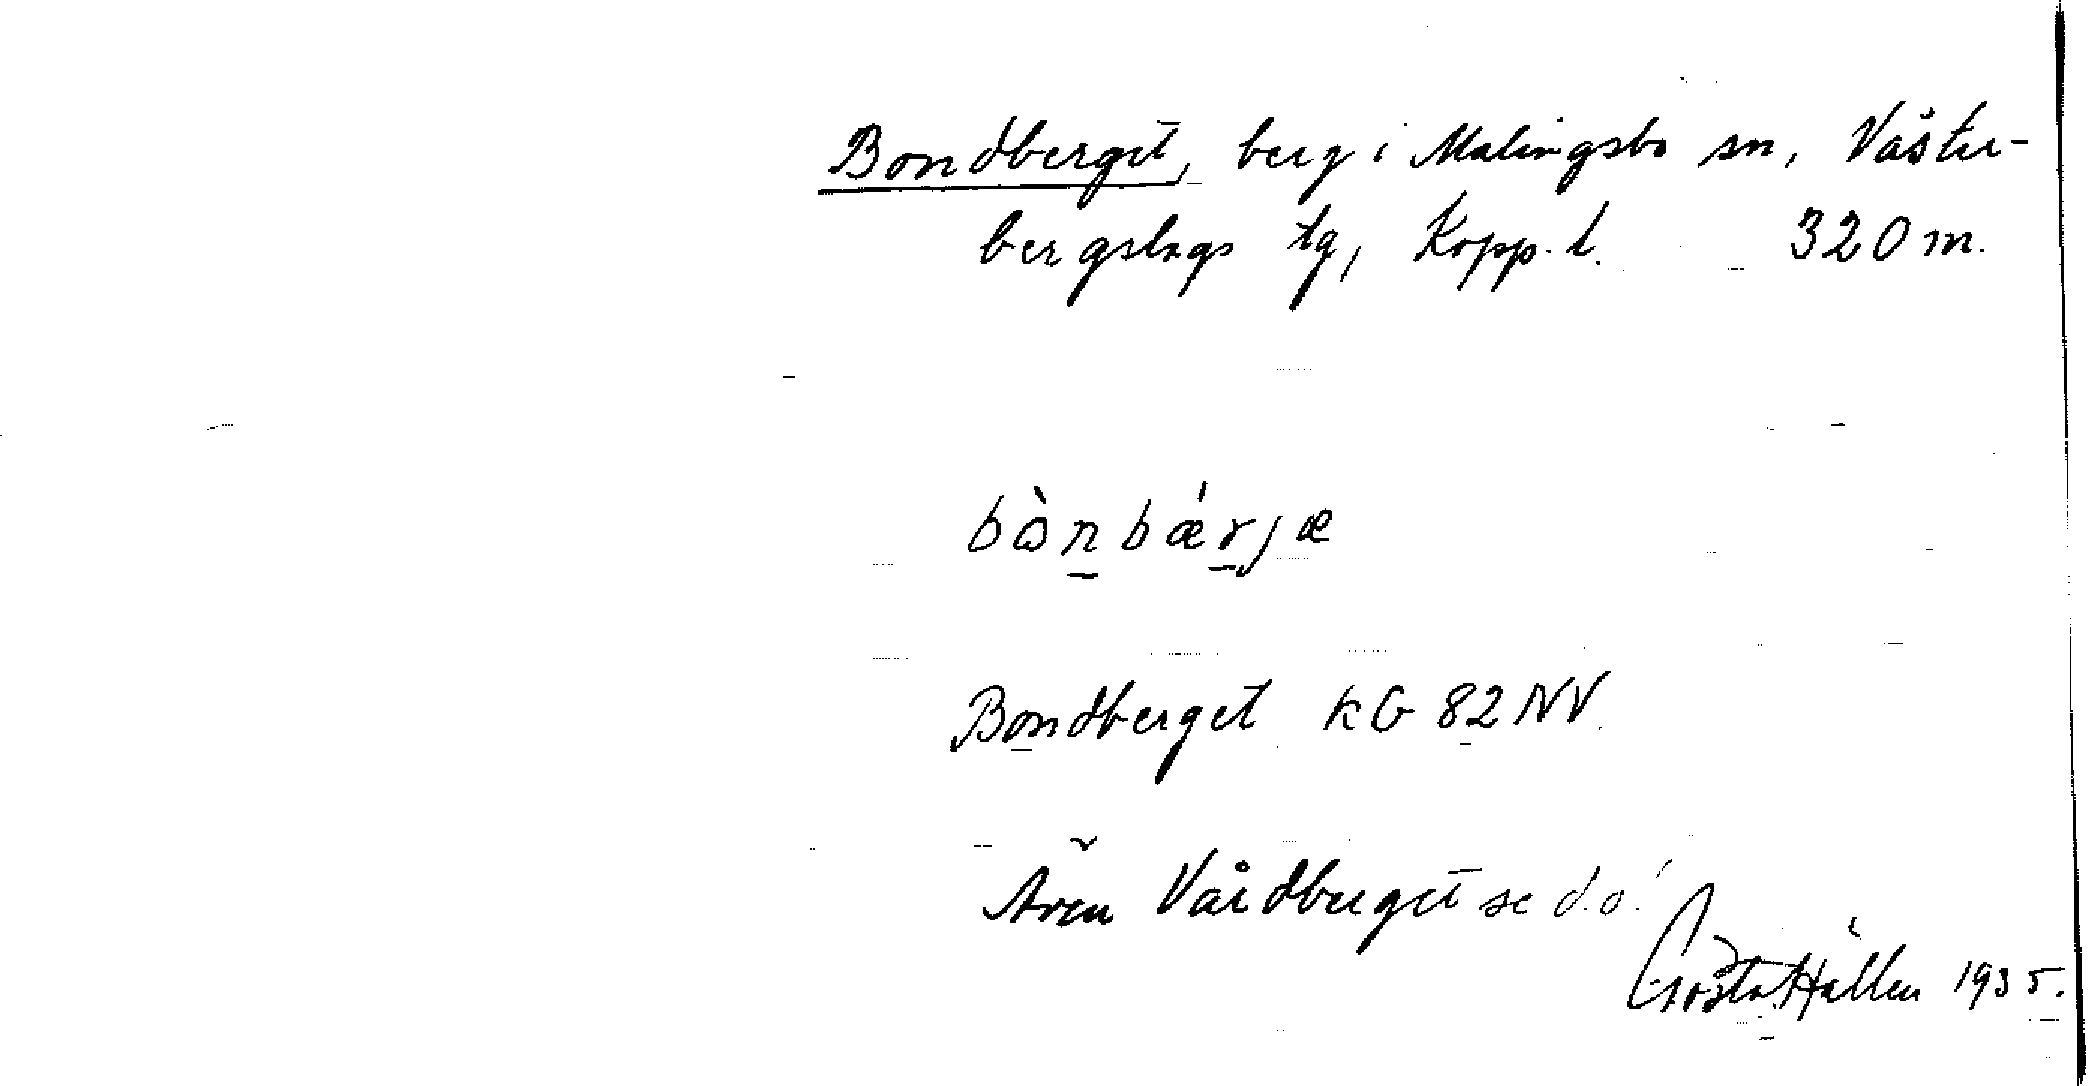 Bondberget, berg i Malingsbo sn, Väster-
bergslags tg, Kopp. l. 320 m.
bònbǽrjæ
Bondberget KG 82 NV.
Även Vårdberget se d.o!
Gösta Hallén 1935.